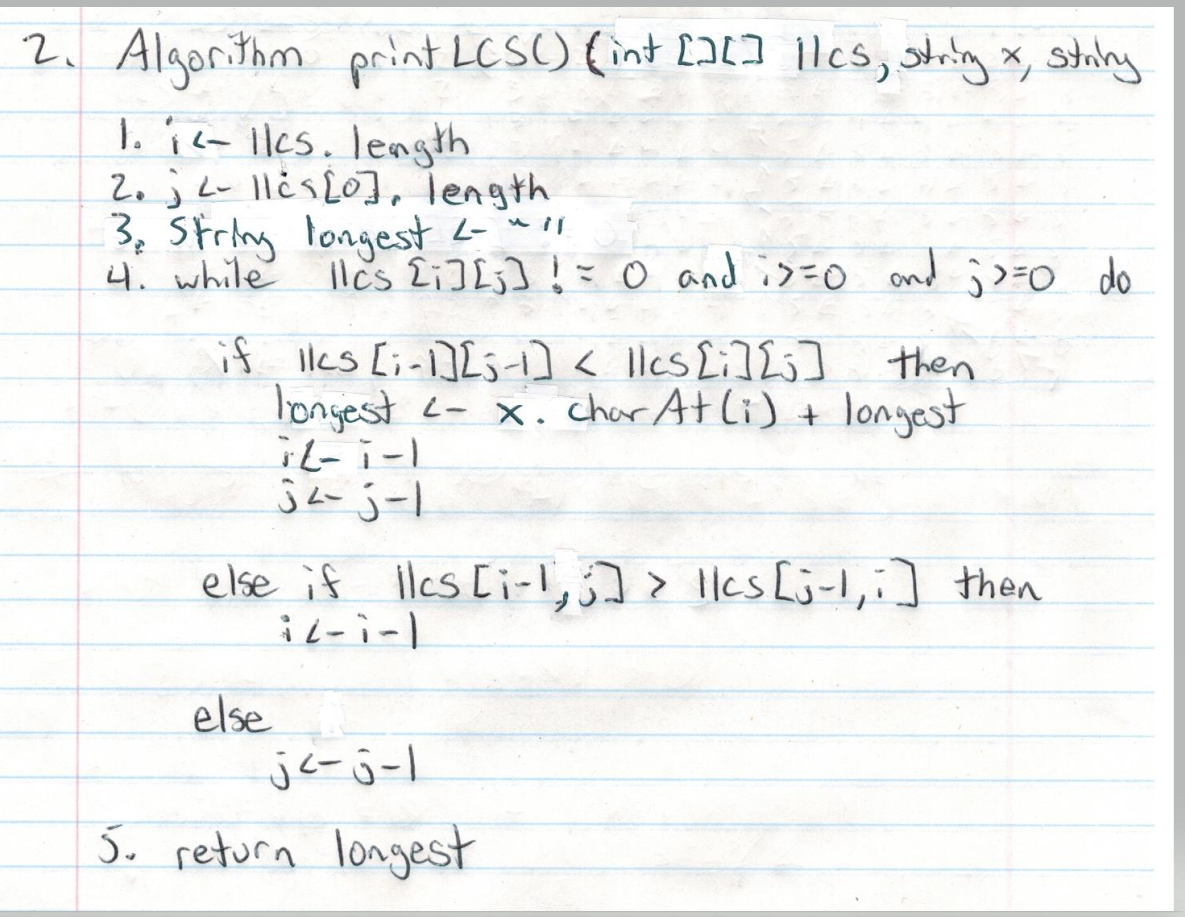 2. Algorithm printLCS() (int [][] llcs, string x, string
1. i <- llcs. length
2. j <- llcs[0]. length
3. String longest <- " "
4. while llcs [i][j] != 0 and i>=0 and j>=0 do
if llcs [i-1][j-1] < llcs[i][j] then
longest <- x. charAt(i) + longest
i<- i-1
j<- j-1
else if llcs [i-1,j] > llcs[j-1,i] then
i<-i-1
else
j<-j-1
5. return longest